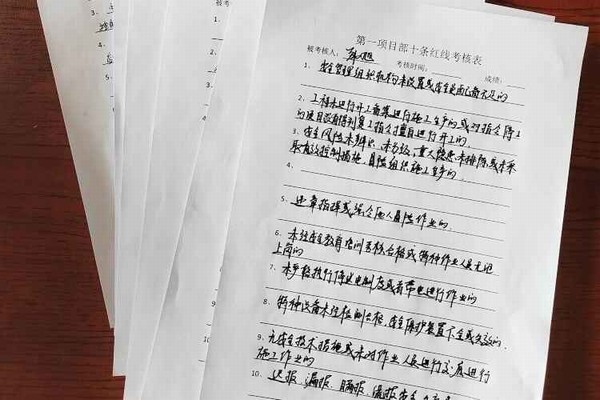 第一项目部十条红线考核表
被考核人： 考核时间： 成绩：
1、安全管理组织机构未设置或安全员配备不足的
2、工程未进行开工备案进行施工生产的或对指令停工
的项目没有得到复工指令擅自进行开工的
3、安全风险未辨识、未分级，重大隐患未排除，或未采
取有效控制措施，冒险组织施工生产的
4、
5、违章指挥或强令他人冒险作业的
6、未经安全教育培训考核合格或特种作业人员无证
上岗的
7、未严格执行停送电制度或者带电进行作业的
8、特种设备未经检测合格，安全保护装置不全或失效的
9、无安全技术措施或未对作业人员进行交底进行
施工作业的
10、迟报、漏报、瞒报、谎报